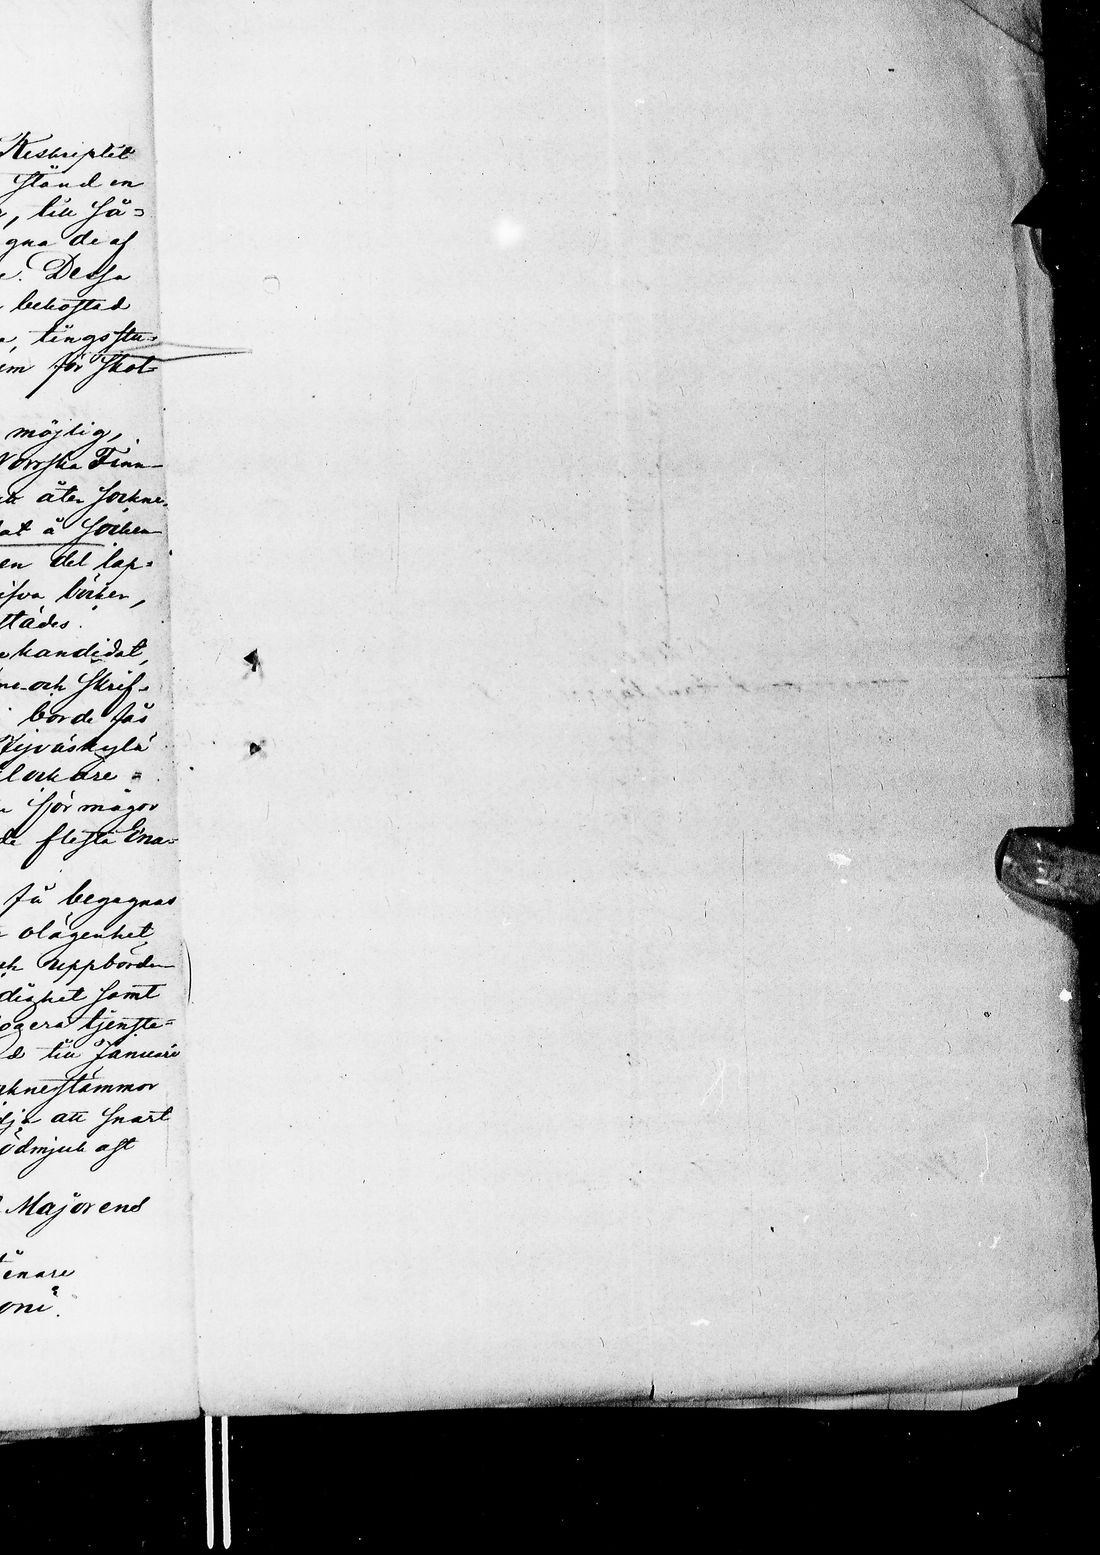 Reskriptet
stånd en
, till så=
gna de af
. Dessa
bekostad
, tingsstu=
im för Skol=
möjlig,
Norrska Finn-
åter sockne-
at å socken
en del lap=
ifva böcker,
städes.
kandidat,
ne och Skrif=
borde fås
Jyväskylä
lockare =
för mågor
de flesta Ena=
få begagnas
olägenhet
ch uppbörds-
dighet samt
ogera tjenste=
d till Januari
knestämmor
dja att snart
ödmjukast
Majorens
enare
oni.